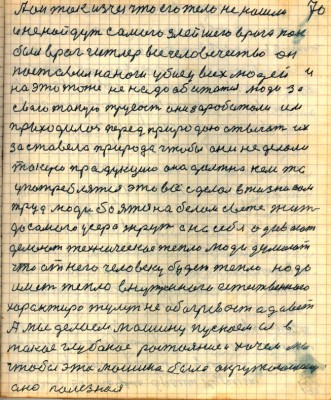 70
А он так изчез что его тело не нашли
и не найдут самого злейшего врага как
был враг гитлер все человечество он
поставил на ноги убиец всех людей и
на это тоже не надо обитатся люди за
свою такую трусост они заработали им
приходилос перед природаю отвечат их
заставела природа чтобы они не делали
такую прадукцию она должна кем то
употреблятся это все сделал в жизни сам
труд люди боятся на белом свете жит
до самого усера жрут а на себя одевают
делают техническое тепло люди думают
что от него человеку будет тепло надо
имет тепло внутренного естественного
характира тулуп не обогривает а давит
А мы делаем машину пускаем ее в
такое глубокое ростояние зачем
чтобы эта машина была окружающему
она полезная